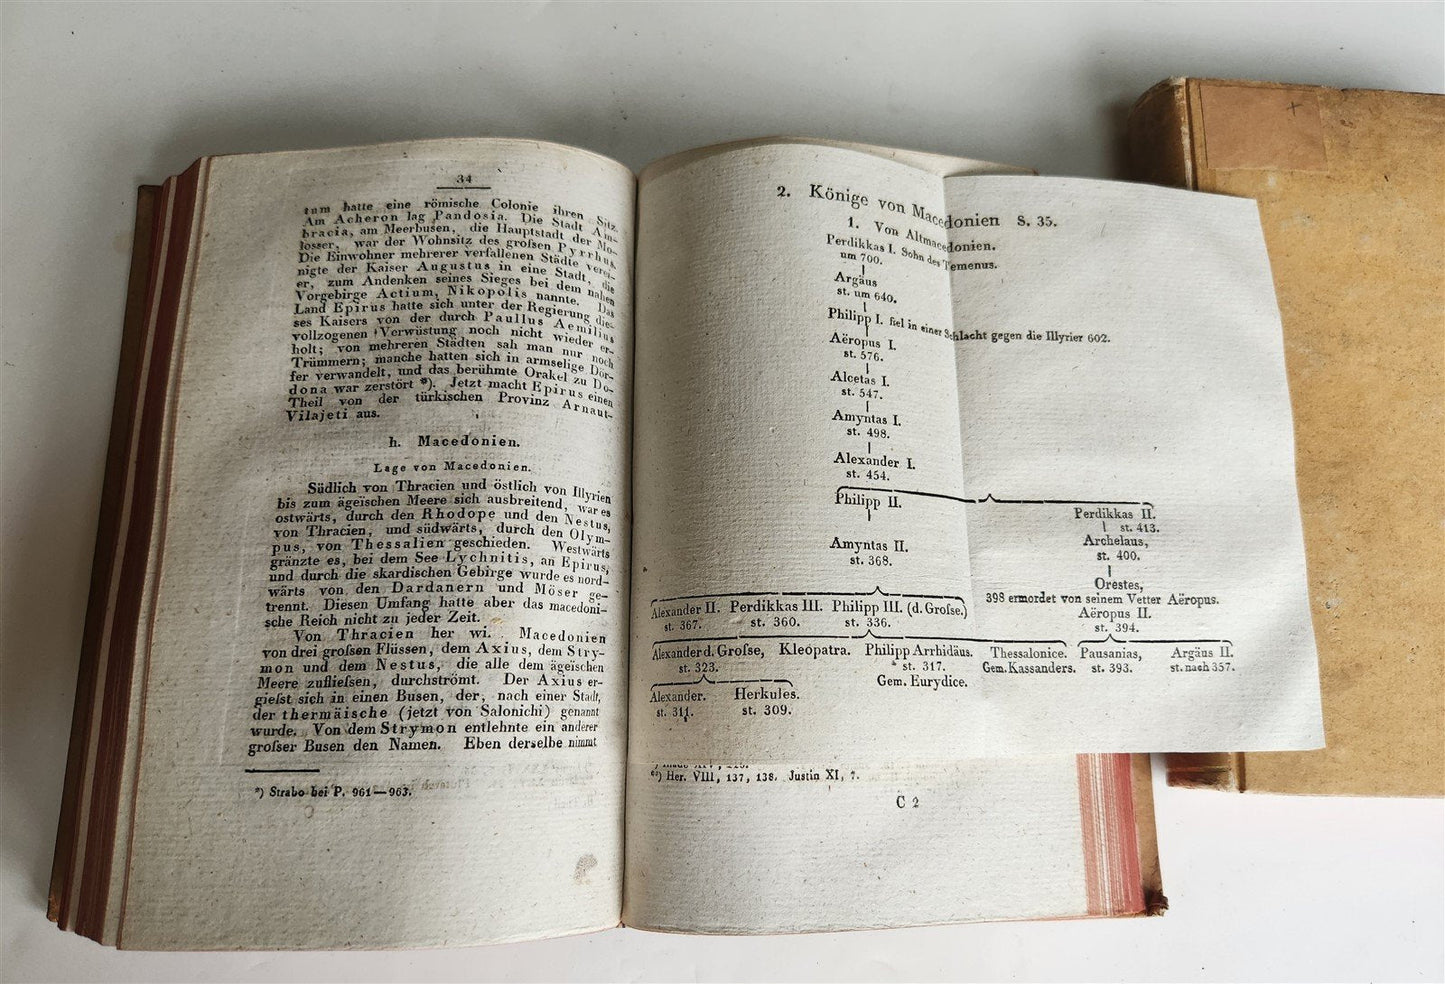 34
tum hatte eine römische Colonie ihren Sitz.
Am Acheron lag Pandosia. Die Stadt Am-
bracia, am Meerbusen, die Hauptstadt der Mo-
losser, war der Wohnsitz des grofsen Pyrrhus.
Die Einwohner mehrerer verfallenen Städte verei-
nigte der Kaiser Augustus in eine Stadt, die
er, zum Andenken seines Sieges bei dem nahen
Vorgebirge Actium, Nikopolis nannte. Das
Land Epirus hatte sich unter der Regierung die-
ses Kaisers von der durch Paullus Aemilius
vollzogenen Verwüstung noch nicht wieder er-
holt; von mehreren Städten sah man nur noch
Trümmern; manche hatten sich in armselige Dör-
fer verwandelt, und das berühmte Orakel zu Do-
dona war zerstört *). Jetzt macht Epirus einen
Theil von der türkischen Provinz Arnaut-
Vilajeti aus.
h. Macedonien.
Lage von Macedonien.
Südlich von Thracien und östlich von Illyrien
bis zum ägeischen Meere sich ausbreitend, war es
ostwärts, durch den Rhodope und den Nestus,
von Thracien, und südwärts, durch den Olym-
pus, von Thessalien geschieden. Westwärts
gränzte es, bei dem See Lychnitis, an Epirus,
und durch die skardischen Gebirge wurde es nord-
wärts von den Dardanern und Möser ge-
trennt. Diesen Umfang hatte aber das macedoni-
sche Reich nicht zu jeder Zeit.
Von Thracien her wi. Macedonien
von drei grofsen Flüssen, dem Axius, dem Stry-
mon und dem Nestus, die alle dem ägeischen
Meere zufliefsen, durchströmt. Der Axius er-
giefst sich in einen Busen, der, nach einer Stadt,
der thermäische (jetzt von Salonichi) genannt
wurde. Von dem Strymon entlehnte ein anderer
grofser Busen den Namen. Eben derselbe nimmt
*) Strabo bei P. 961—963.
2. Könige von Macedonien S. 35.
1. Von Altmacedonien.
Perdikkas I. Sohn des Temenus.
um 700.
Argäus
st. um 640.
Philipp I. fiel in einer Schlacht gegen die Illyrier 602.
Aëropus I.
st. 576.
Alcetas I.
st. 547.
Amyntas I.
st. 498.
Alexander I.
st. 454.
Philipp II. Perdikkas II.
st. 413.
Archelaus,
Amyntas II. st. 400.
st. 368.
Orestes,
398 ermordet von seinem Vetter Aëropus.
Alexander II. Perdikkas III. Philipp III. (d. Grofse.) Aëropus II.
st. 367. st. 360. st. 336. st. 394.
Alexander d. Grofse, Kleopatra. Philipp Arrhidäus. Thessalonice. Pausanias, Argäus II.
st. 323. st. 317. Gem. Kassanders. st. 393. st. nach 357.
Gem. Eurydice.
Alexander. Herkules.
st. 311. st. 309.
**) Her. VIII, 137, 138. Justin XI, 7.
C 2